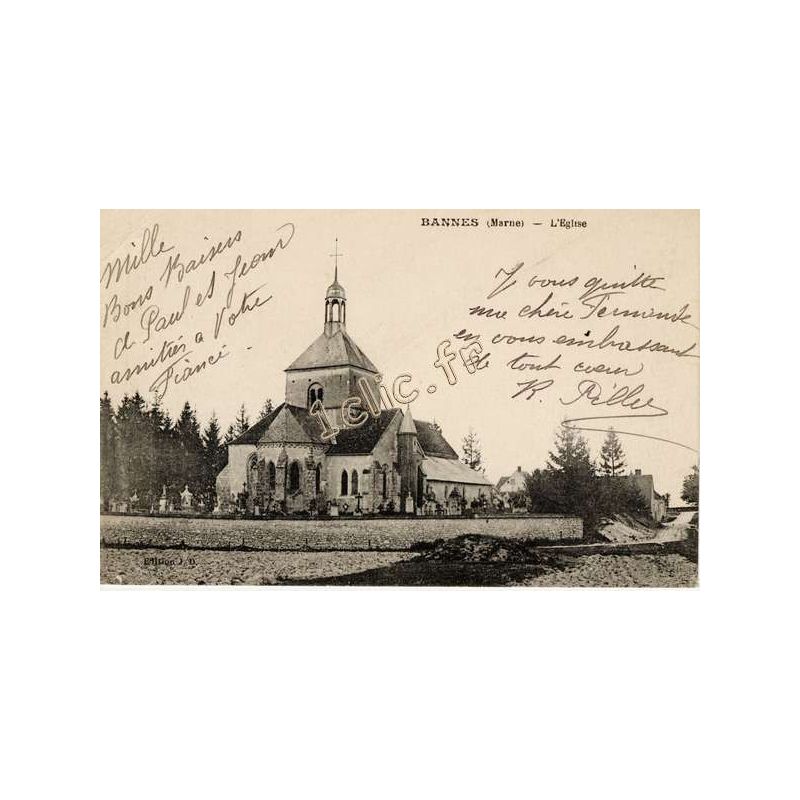 BANNES (Marne) — L'Eglise
Mille
Bons Baisers
d Paul et Jean
amitiés a Votre
Fiancé.
J vous quitte
ma chère Fernande
en vous embrassant
de tout cœur
1clic.fr
Edition J. D.